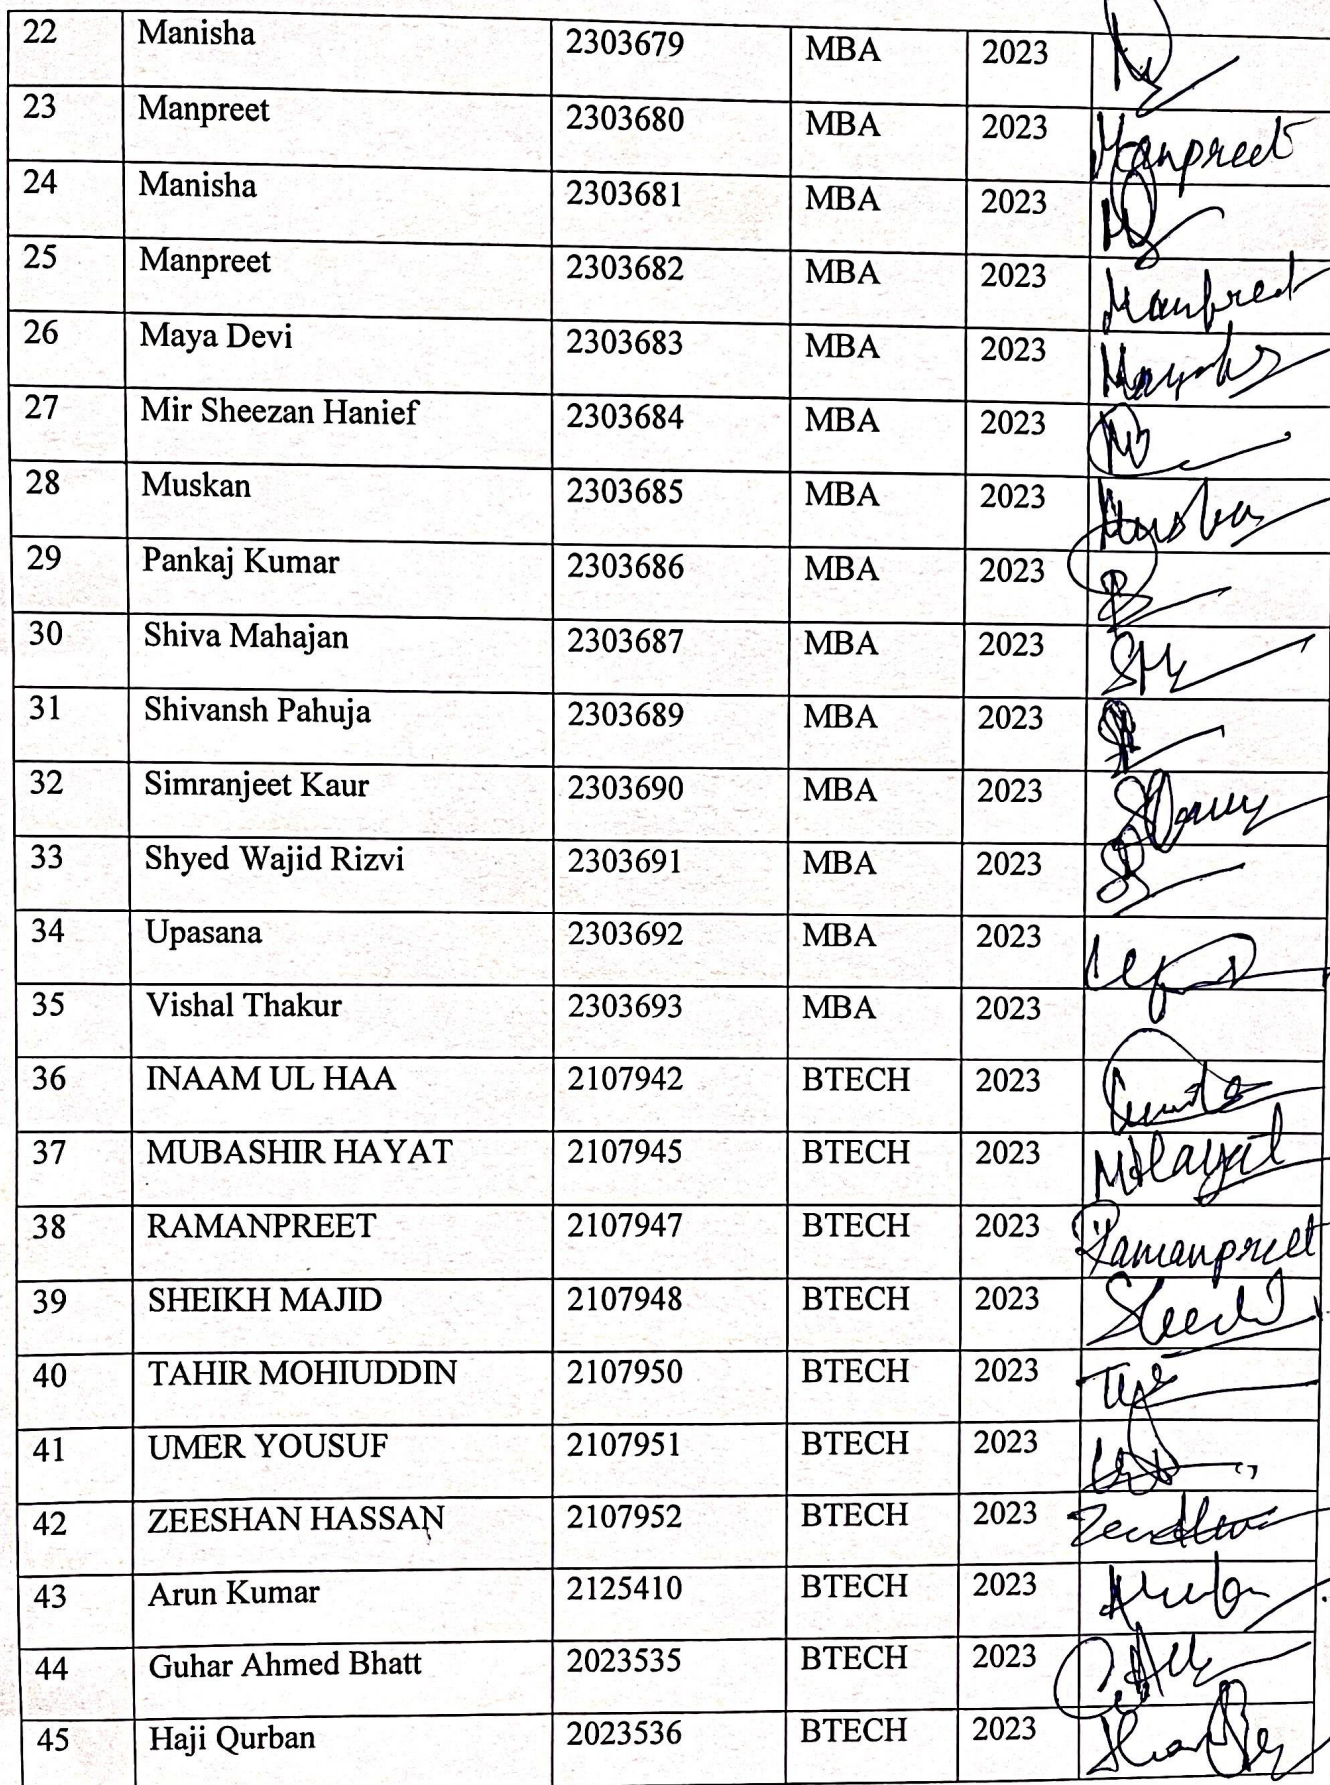 22 Manisha 2303679 MBA 2023
23 Manpreet 2303680 MBA 2023 Manpreet
24 Manisha 2303681 MBA 2023
25 Manpreet 2303682 MBA 2023 Manpreet
26 Maya Devi 2303683 MBA 2023
27 Mir Sheezan Hanief 2303684 MBA 2023
28 Muskan 2303685 MBA 2023
29 Pankaj Kumar 2303686 MBA 2023
30 Shiva Mahajan 2303687 MBA 2023
31 Shivansh Pahuja 2303689 MBA 2023
32 Simranjeet Kaur 2303690 MBA 2023
33 Shyed Wajid Rizvi 2303691 MBA 2023
34 Upasana 2303692 MBA 2023
35 Vishal Thakur 2303693 MBA 2023
36 INAAM UL HAA 2107942 BTECH 2023
37 MUBASHIR HAYAT 2107945 BTECH 2023 MHayat
38 RAMANPREET 2107947 BTECH 2023 Ramanpreet
39 SHEIKH MAJID 2107948 BTECH 2023
40 TAHIR MOHIUDDIN 2107950 BTECH 2023
41 UMER YOUSUF 2107951 BTECH 2023
42 ZEESHAN HASSAN 2107952 BTECH 2023
43 Arun Kumar 2125410 BTECH 2023
44 Guhar Ahmed Bhatt 2023535 BTECH 2023
45 Haji Qurban 2023536 BTECH 2023